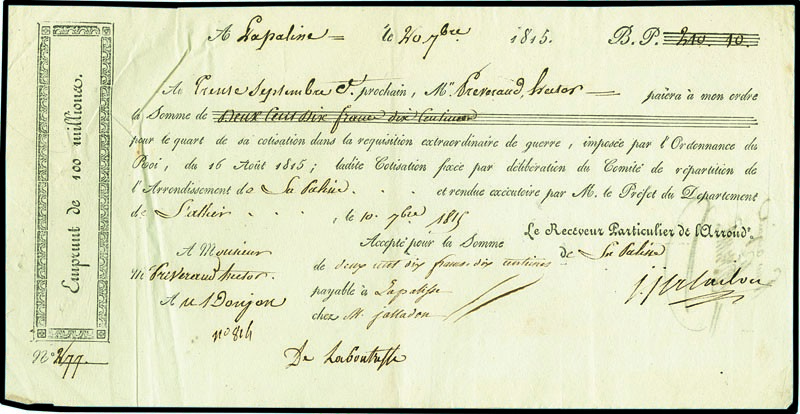 Emprunt de 100 millions.
A Lapalisse le 20 7bre 1815. B. P. 210. 10.
Au Trente Septembre prochain, Mr. Préveraud, hector paiera à mon ordre
la Somme de Deux Cent Dix francs dix Centimes
pour le quart de sa cotisation dans la requisition extraordinaire de guerre, imposée par l'Ordonnance du
Roi, du 16 Août 1815; ladite Cotisation fixée par délibération du Comité de répartition de
l'Arrondissement de La Palisse et rendue exécutoire par M. le Préfet du Departement
de L'allier , le 10 7bre 1815
Le Receveur Particulier de l'Arrondt.
de La Palisse
A Monsieur
M Préveraud hector
A u Donjon
no 814
Accepté pour la Somme
de deux cent dix francs dix centimes
payable à Lapalisse
chez M. jalladon
De Laboutresse
No. 277.